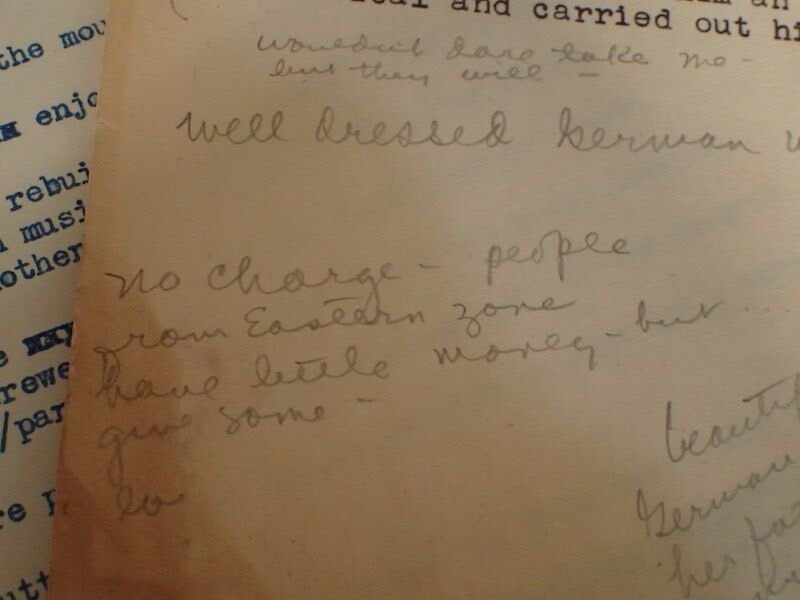 the mou
enjo
rebui
musi
nother
rewe
/par
re p
utt
and carried out hi
wouldn't dare take me -
but they will -
Well dressed German w
no charge - people
from Eastern zone
have little money - but ...
give some -
to
beautif
German
her fat